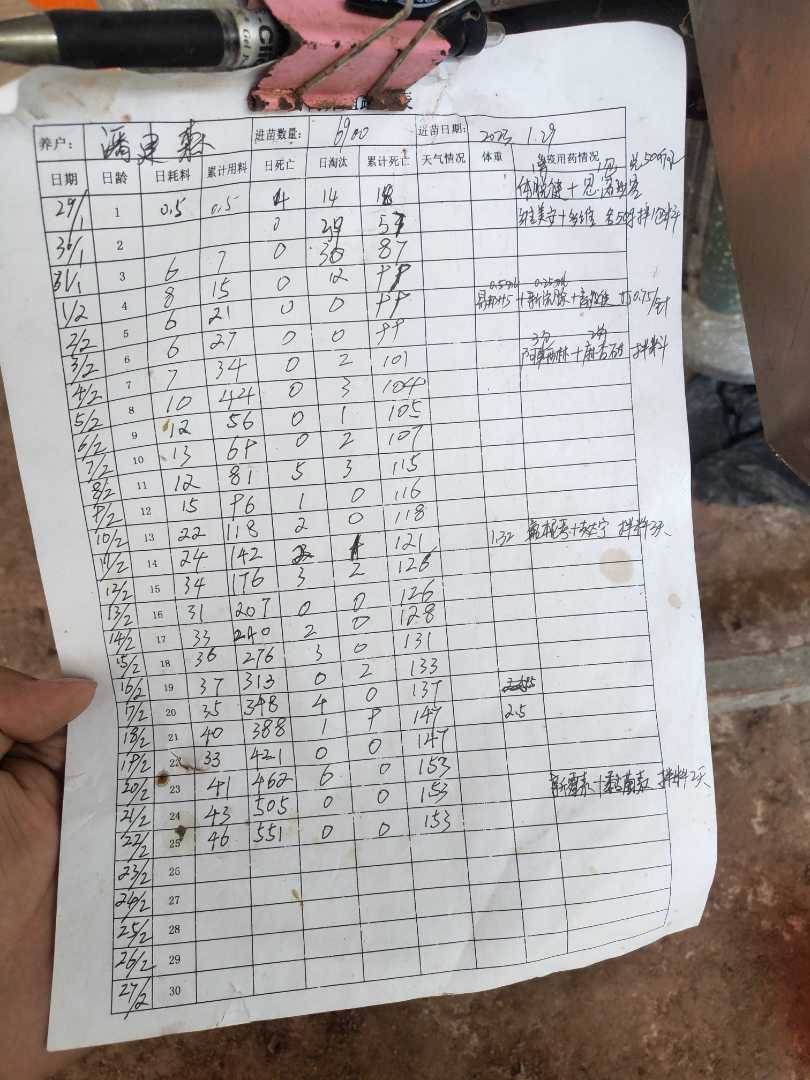 养户: 潘建森 进苗数量: 6900 进苗日期: 2023 1.29
日期 日龄 日耗料 累计用料 日死亡 日淘汰 累计死亡 天气情况 体重 用药情况
29/1 1 0.5 0.5 4 14 18
30/1 2 0 39 57
31/1 3 6 7 0 30 87
1/2 4 8 15 0 12 99
2/2 5 6 21 0 0 99
3/2 6 6 27 0 0 99
4/2 7 7 34 0 2 101
5/2 8 10 44 0 3 104
6/2 9 12 56 0 1 105
7/2 10 13 69 0 2 107
8/2 11 12 81 5 3 115
9/2 12 15 96 1 0 116
10/2 13 22 118 2 0 118
11/2 14 24 142 2 1 121 1.32 拌料3天
12/2 15 34 176 3 2 126
13/2 16 31 207 0 0 126
14/2 17 33 240 2 0 128
15/2 18 36 276 3 0 131
16/2 19 37 313 0 2 133
17/2 20 35 348 4 0 137
18/2 21 40 388 1 9 147 2.5
19/2 22 33 421 0 0 147
20/2 23 41 462 6 0 153
21/2 24 43 505 0 0 153 新霉素+黏菌素 拌料2天
22/2 25 46 551 0 0 153
23/2 26
24/2 27
25/2 28
26/2 29
27/2 30